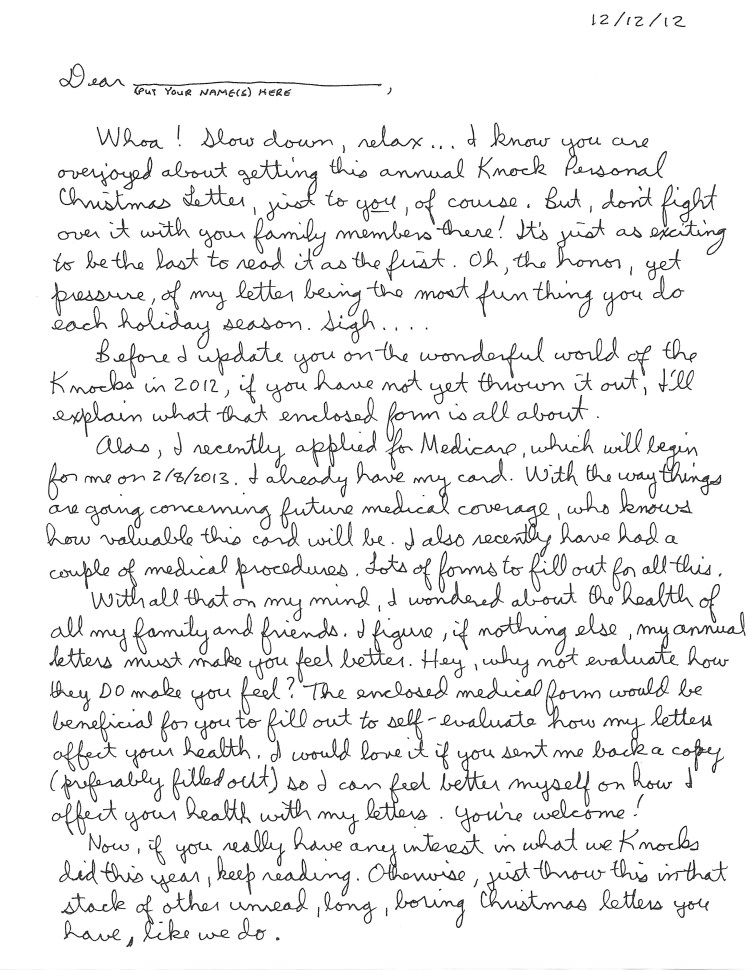 12/12/12
Dear ____________________,
(PUT YOUR NAME(S) HERE
Whoa! Slow down, relax... I know you are
overjoyed about getting this annual Knock Personal
Christmas Letter, just to you, of course. But, don't fight
over it with your family members there! It's just as exciting
to be the last to read it as the first. Oh, the honor, yet
pressure, of my letter being the most fun thing you do
each holiday season. Sigh....
Before I update you on the wonderful world of the
Knocks in 2012, if you have not yet thrown it out, I'll
explain what that enclosed form is all about.
Alas, I recently applied for Medicare, which will begin
for me on 2/8/2013. I already have my card. With the way things
are going concerning future medical coverage, who knows
how valuable this card will be. I also recently have had a
couple of medical procedures. Lots of forms to fill out for all this.
With all that on my mind, I wondered about the health of
all my family and friends. I figure, if nothing else, my annual
letters must make you feel better. Hey, why not evaluate how
they DO make you feel? The enclosed medical form would be
beneficial for you to fill out to self-evaluate how my letters
affect your health. I would love it if you sent me back a copy
(preferably filled out) so I can feel better myself on how I
affect your health with my letters. You're welcome!
Now, if you really have any interest in what we Knocks
did this year, keep reading. Otherwise, just throw this in that
stack of other unread, long, boring Christmas letters you
have, like we do.